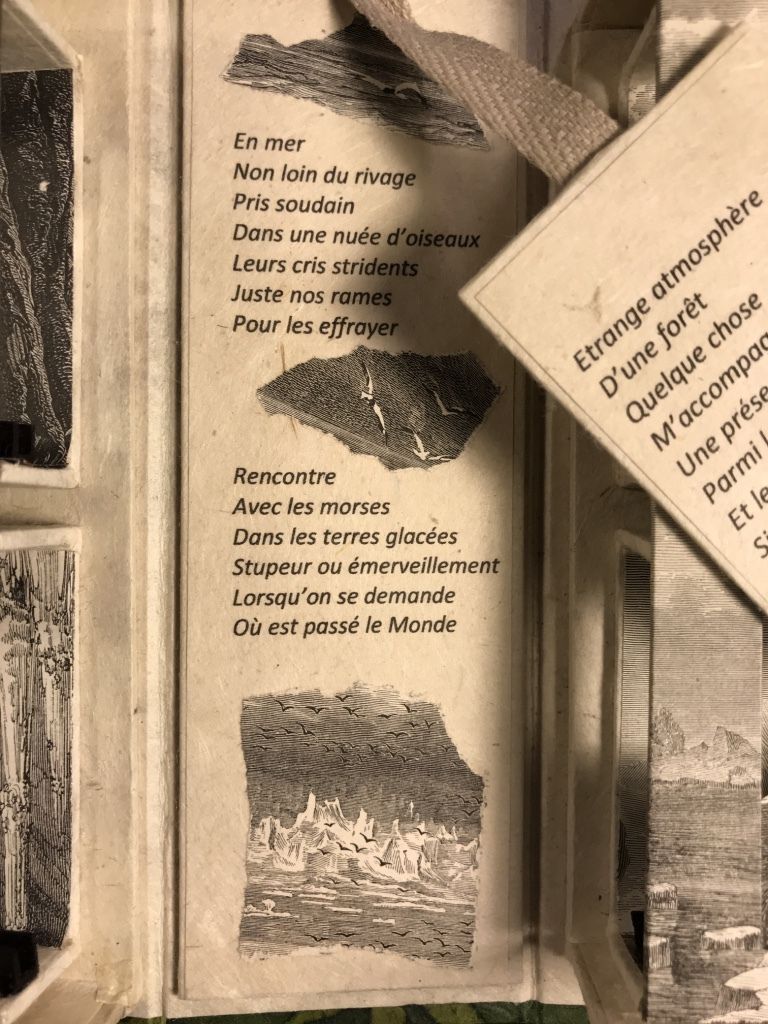 En mer
Non loin du rivage
Pris soudain
Dans une nuée d'oiseaux
Leurs cris stridents
Juste nos rames
Pour les effrayer
Rencontre
Avec les morses
Dans les terres glacées
Stupeur ou émerveillement
Lorsqu'on se demande
Où est passé le Monde
Etrange atmosphère
D'une forêt
Quelque chose
Une
Parmi
Et